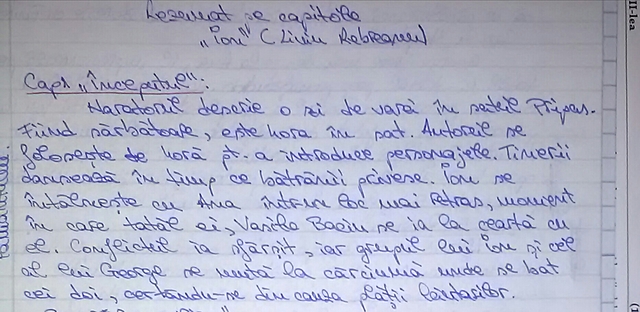 Rezumat pe capitole
"Ion" (Liviu Rebreanu)
Cap1 "Începutul":
Naratorul descrie o zi de vară în satul Pripas.
Fiind sărbătoare, este hora în sat. Autorul se
folosește de horă pt. a introduce personajele. Tinerii
dansează în timp ce bătrânii privesc. Ion se
întâlnește cu Ana într-un loc mai retras, moment
în care tatăl ei, Vasile Baciu se ia la ceartă cu
el. Conflictul ia sfârșit, iar grupul lui Ion și cel
al lui George se mută la cârciumă unde se bat
cei doi, certându-se din cauza plății lăutarilor.
II-lea